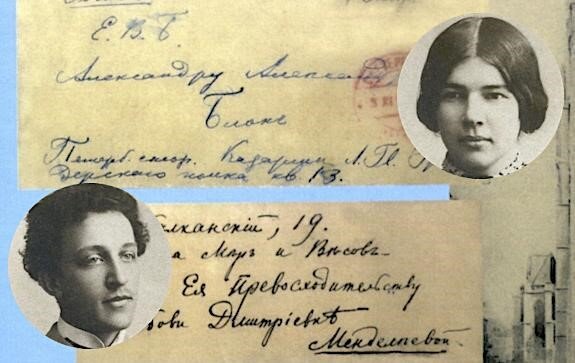 Е. В. Б.
Александру Алексан
Блокъ
Петерб. стор. Казармы Л. Гв. Гр
дерскаго полка кв. 13.
лканскій, 19.
а Мѣръ и Вѣсовъ
Ея Превосходительству
бови Дмитріевнѣ
Менделѣевой